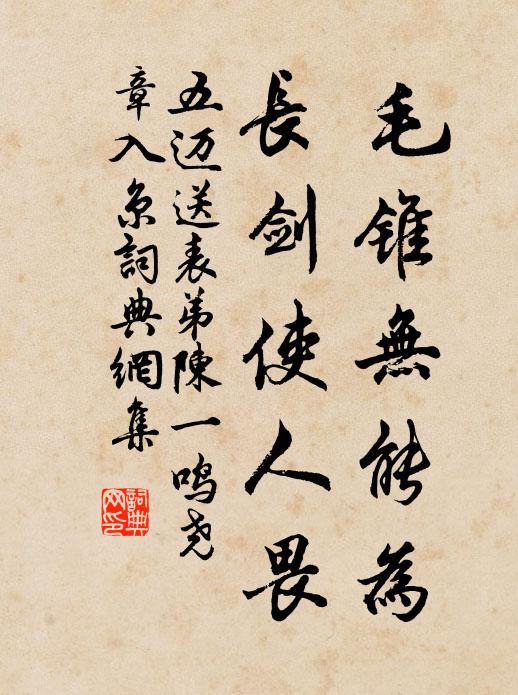 毛錐無能為
長劍使人畏
五迈送表弟陳一鸣尧
章入京詞典網集
詞典网印